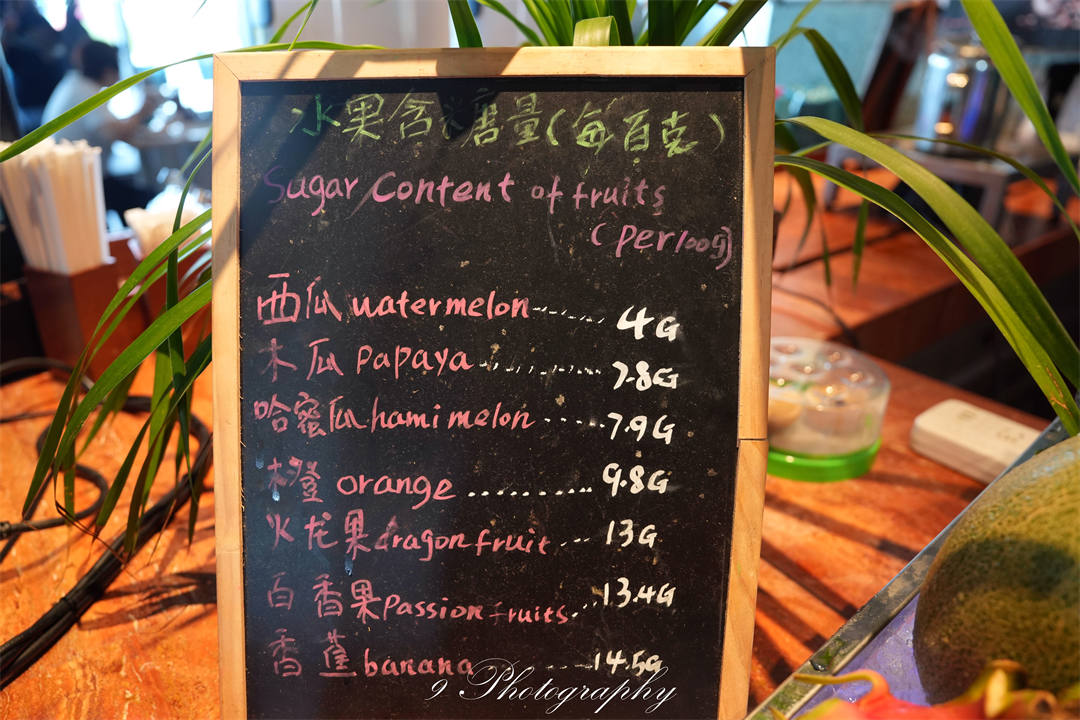 水果含糖量(每百克)
Sugar Content of fruits
(per100g)
西瓜 watermelon------ 4G
木瓜 papaya ----------- 7.8G
哈蜜瓜 hami melon ------ 7.9G
橙 orange .......... 9.8G
火龙果 dragon fruit --- 13G
百香果 passion fruits... 13.4G
香蕉 banana ---- 14.5G
9 Photography